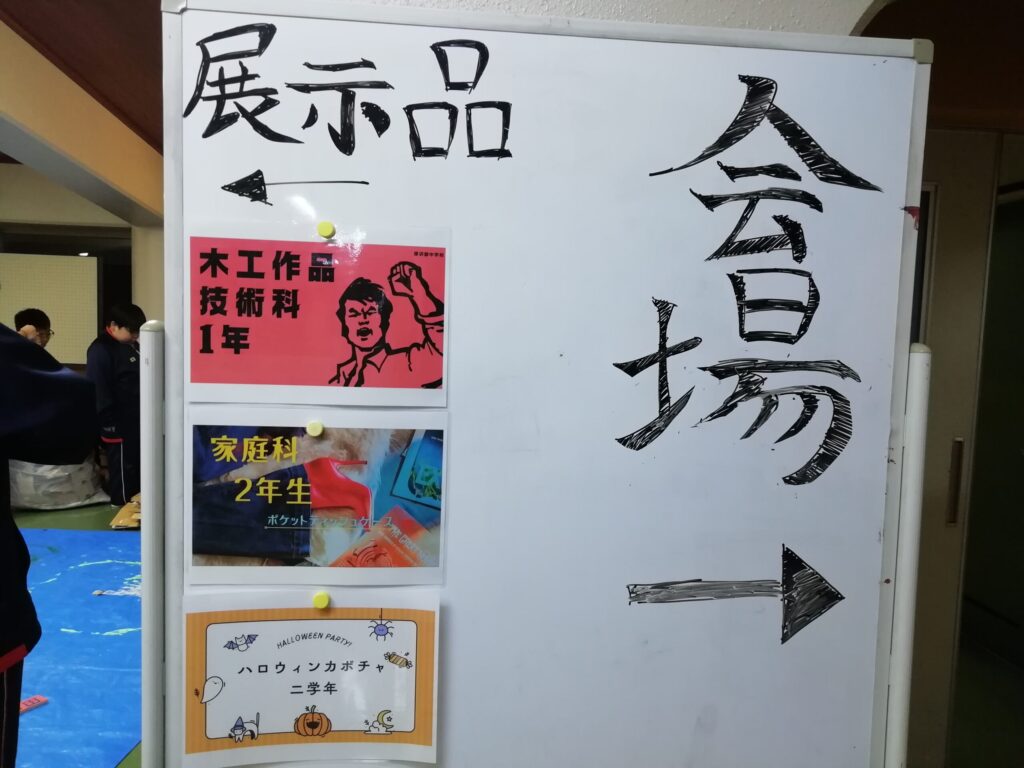 展示品
会場
木工作品
技術科
1年
家庭科
2年生
ポケットティッシュケース
HALLOWEEN PARTY!
ハロウィンカボチャ
二学年